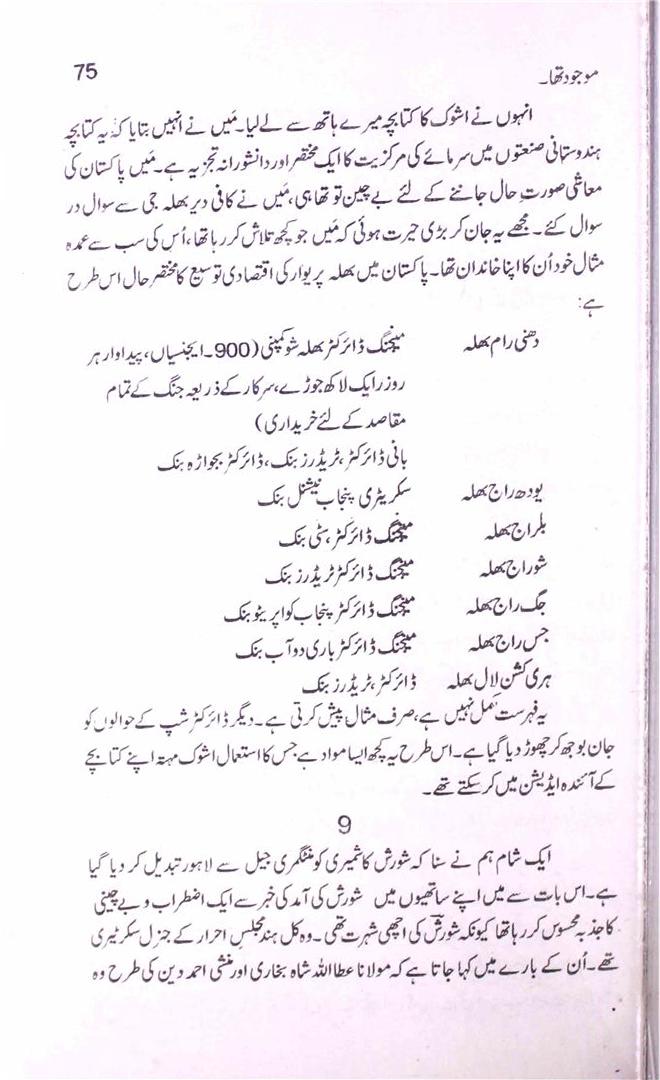 75
موجود تھا۔
انہوں نے اشوک کا کتابچہ میرے ہاتھ سے لے لیا۔ مَیں نے انہیں بتایا کہ یہ کتابچہ
ہندوستانی صنعتوں میں سرمائے کی مرکزیت کا ایک مختصر اور دانشورانہ تجزیہ ہے۔ مَیں پاکستان کی
معاشی صورتِ حال جاننے کے لئے بے چین تو تھا ہی، مَیں نے کافی دیر بھلہ جی سے سوال در
سوال کئے۔ مجھے یہ جان کر بڑی حیرت ہوئی کہ مَیں جو کچھ تلاش کر رہا تھا، اُس کی سب سے عمدہ
مثال خود اُن کا اپنا خاندان تھا۔ پاکستان میں بھلہ پریوار کی اقتصادی توسیع کا مختصر حال اس طرح
ہے:
دھنی رام بھلہ مینجنگ ڈائرکٹر بھلہ شو کمپنی (900۔ ایجنسیاں، پیداوار ہر
روز ایک لاکھ جوڑے، سرکار کے ذریعہ جنگ کے تمام
مقاصد کے لئے خریداری)
بانی ڈائرکٹر، ٹریڈرز بنک، ڈائرکٹر بجواڑہ بنک
یودھ راج بھلہ سکریٹری پنجاب نیشنل بنک
بلراج بھلہ مینجنگ ڈائرکٹر، سٹی بنک
شوراج بھلہ مینجنگ ڈائرکٹر ٹریڈرز بنک
جگ راج بھلہ مینجنگ ڈائرکٹر پنجاب کواپریٹو بنک
جس راج بھلہ مینجنگ ڈائرکٹر باری دوآب بنک
ہری کشن لال بھلہ ڈائرکٹر، ٹریڈرز بنک
یہ فہرست مکمل نہیں ہے، صرف مثال پیش کرتی ہے۔ دیگر ڈائرکٹر شپ کے حوالوں کو
جان بوجھ کر چھوڑ دیا گیا ہے۔ اس طرح یہ کچھ ایسا مواد ہے جس کا استعمال اشوک مہتہ اپنے کتابچے
کے آئندہ ایڈیشن میں کر سکتے تھے۔
9
ایک شام ہم نے سنا کہ شورش کاشمیری کو منٹگمری جیل سے لاہور تبدیل کر دیا گیا
ہے۔ اس بات سے میں اپنے ساتھیوں میں شورش کی آمد کی خبر سے ایک اضطراب و بے چینی
کا جذبہ محسوس کر رہا تھا کیونکہ شورش کی اچھی شہرت تھی۔ وہ کل ہند مجلسِ احرار کے جنرل سکرٹیری
تھے۔ اُن کے بارے میں کہا جاتا ہے کہ مولانا عطااللہ شاہ بخاری اور منشی احمد دین کی طرح وہ